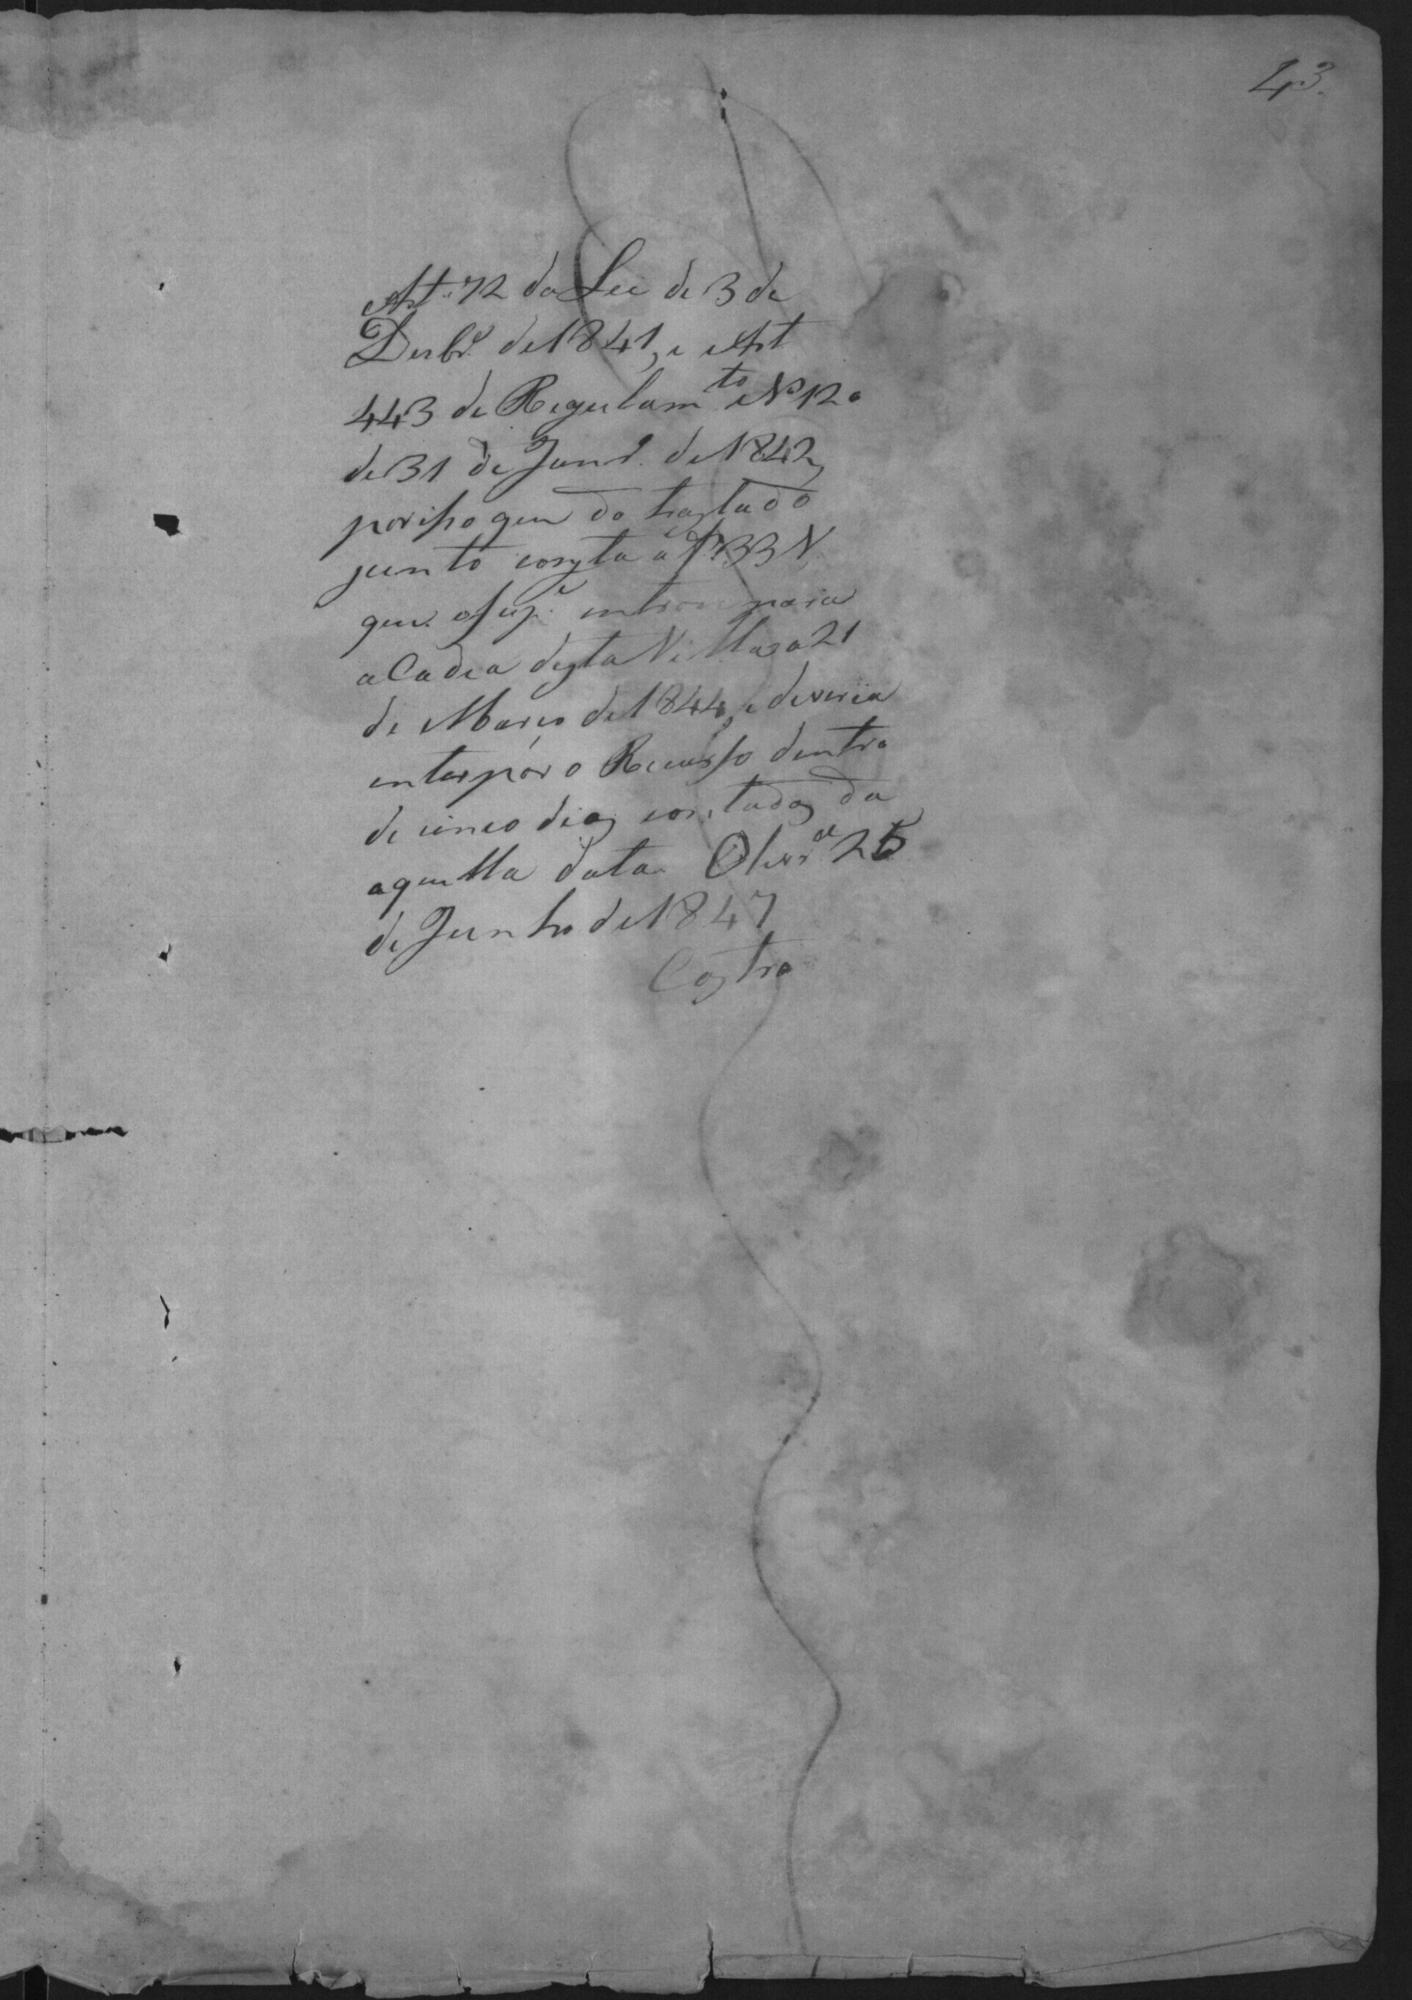 43.
Art. 72 da Lei de 3 de
Dezbrº de 1841, e Art
443 de Regulamto Nº 120
de 31 de Janrº de 1842,
por isso que do traslado
junto consta a fl 33 V
que o Supe entrou para
a Cadea desta Villa a 21
de Março de 1844, e deveria
enterpôr o Recurso dentro
de cinco dias contados da
aquella data. Olivra 25
de Junho de 1847
Castro